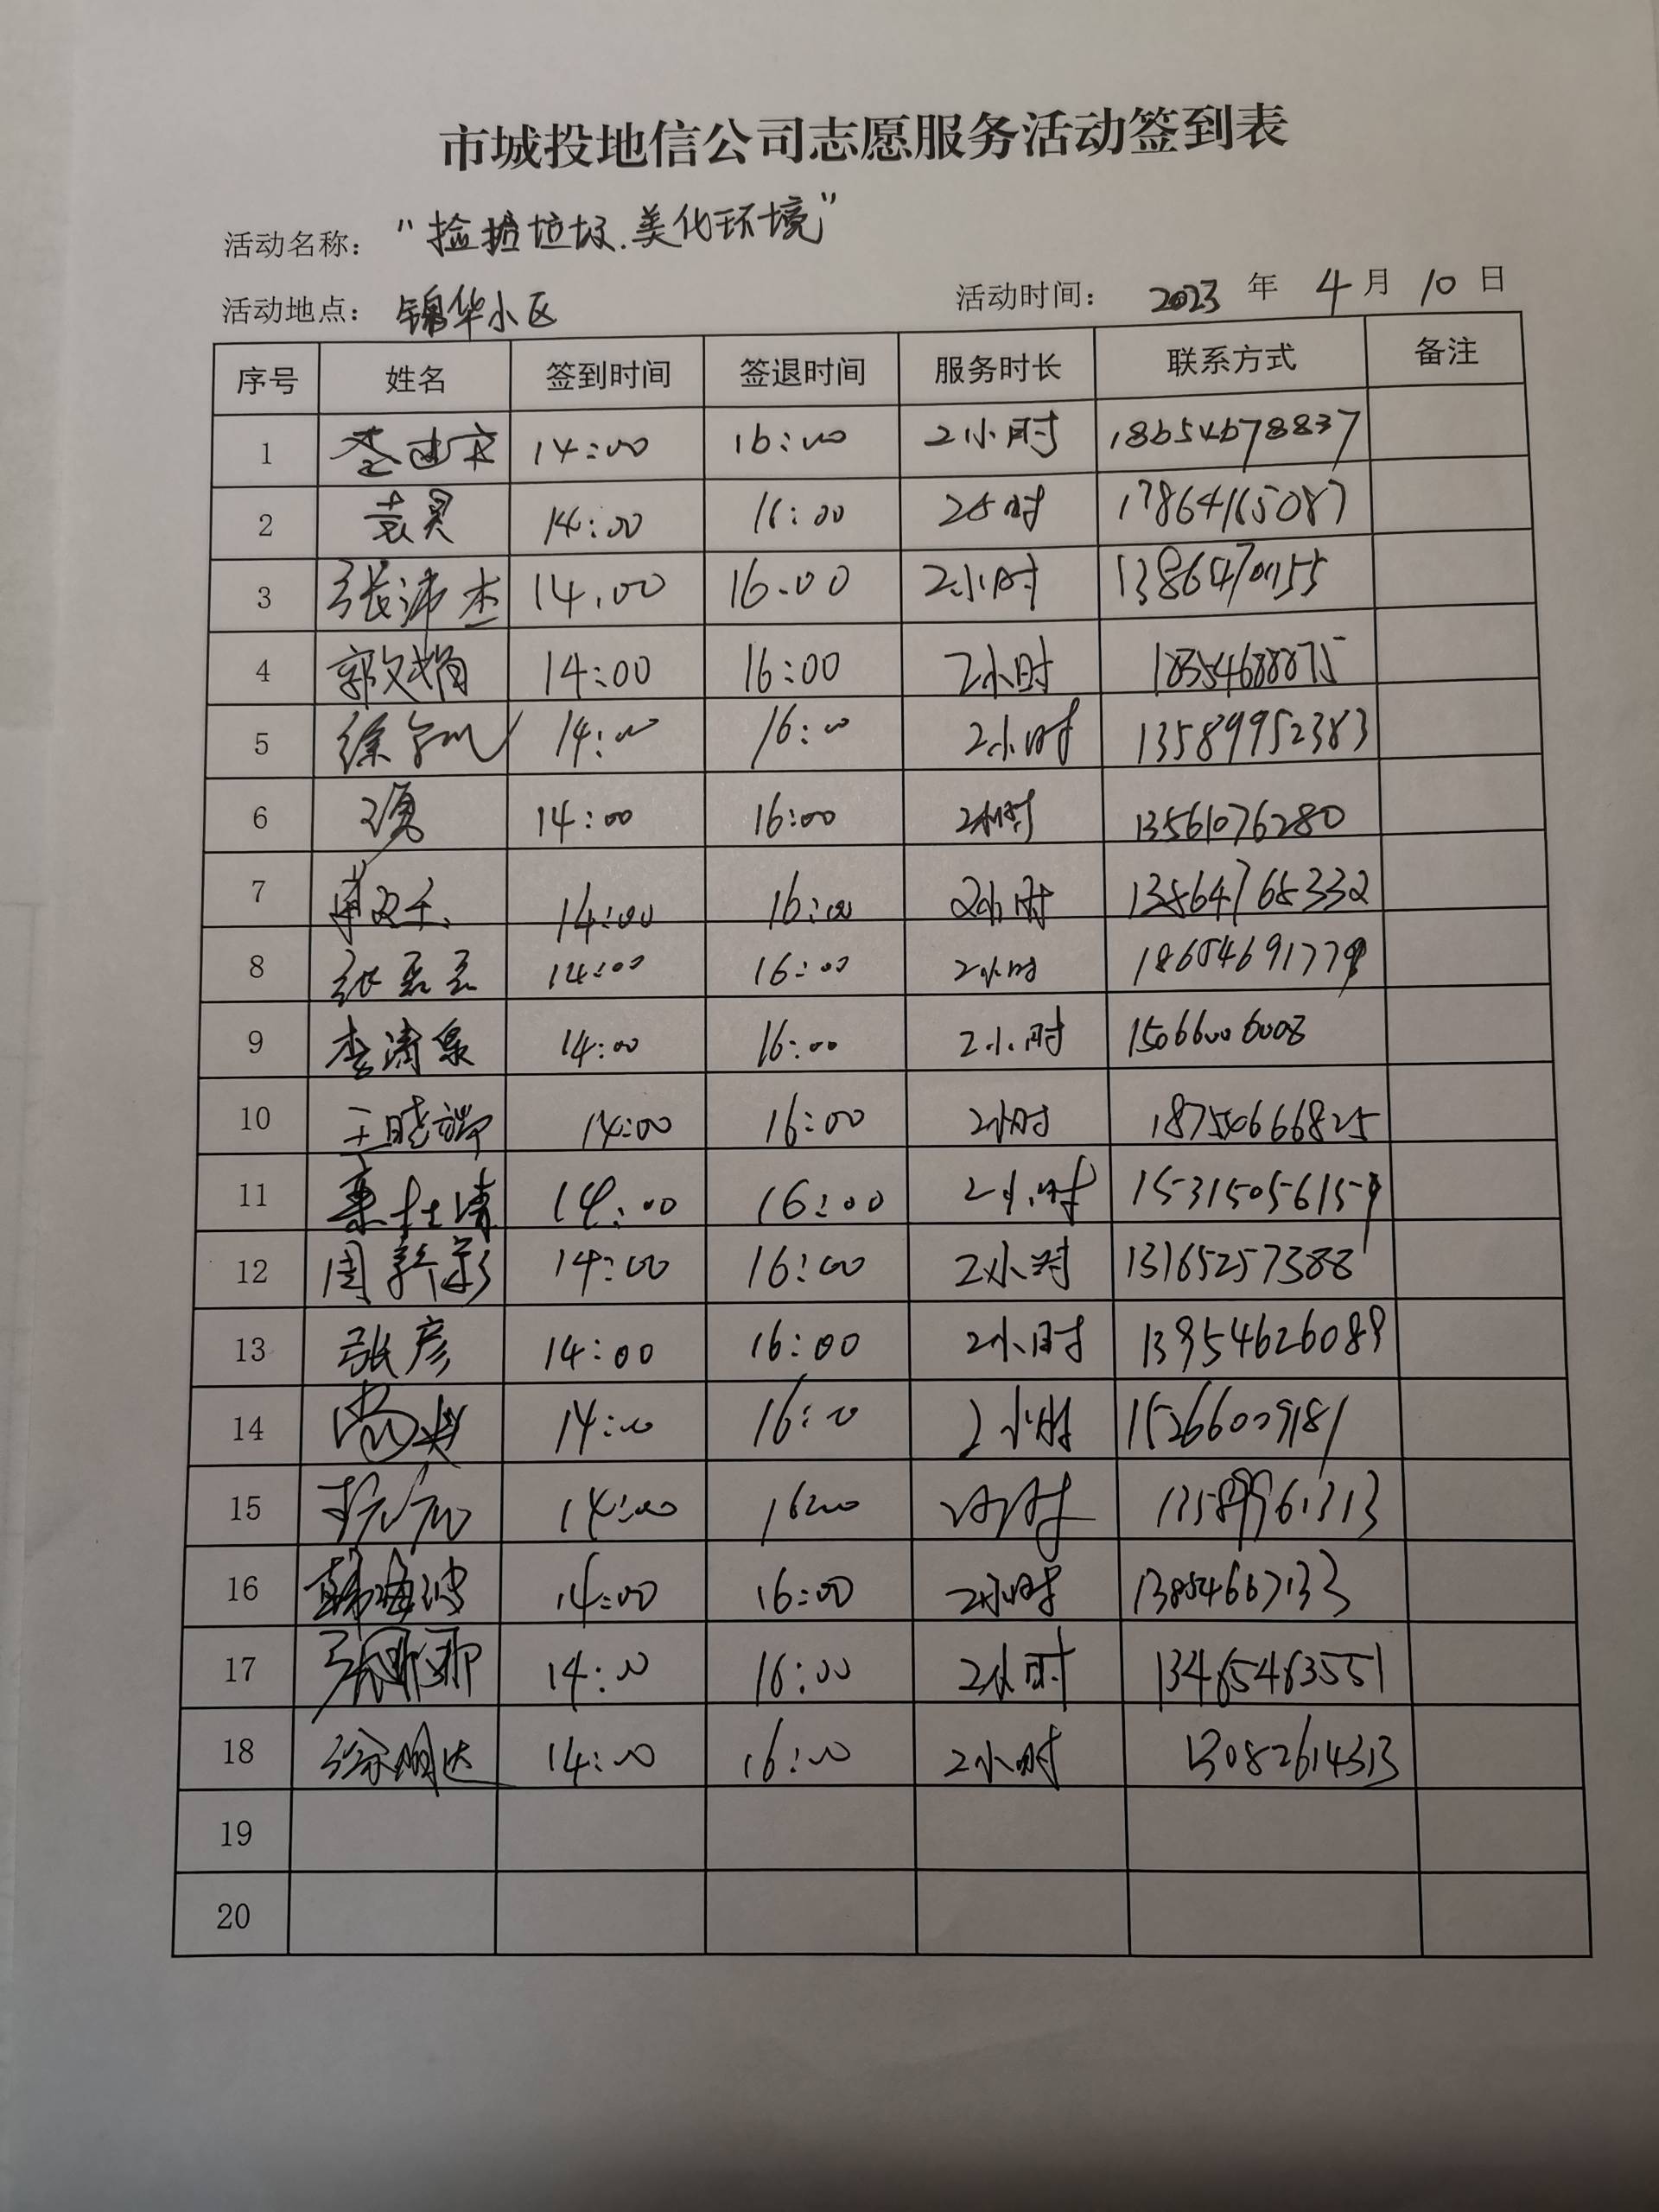 市城投地信公司志愿服务活动签到表
活动名称： “捡拾垃圾.美化环境”
活动地点： 锦华小区 活动时间： 2023 年 4 月 10 日
序号 姓名 签到时间 签退时间 服务时长 联系方式 备注
1 14:00 16:00 2小时 18654678837
2 袁昊 14:00 16:00 2小时 17864165087
3 张沛杰 14.00 16.00 2小时
4 郭文娟 14:00 16:00 2小时 18354688875
5 14:00 16:00 2小时 13589952383
6 14:00 16:00 2小时 13561076280
7 14:00 16:00 2小时 13864768332
8 张磊磊 14:00 16:00 2小时 18654691779
9 李清泉 14:00 16:00 2小时 15066006008
10 王晓 14:00 16:00 2小时 18754666825
11 14:00 16:00 2小时 15315056159
12 周新彩 14:00 16:00 2小时 13165257388
13 张彦 14:00 16:00 2小时 13954626089
14 14:00 16:00 2小时 15266009181
15 14:00 16:00 2小时 13589961313
16 韩海波 14:00 16:00 2小时 13854667133
17 张娜娜 14:00 16:00 2小时 13465463551
18 徐明达 14:00 16:00 2小时 13082614313
19
20